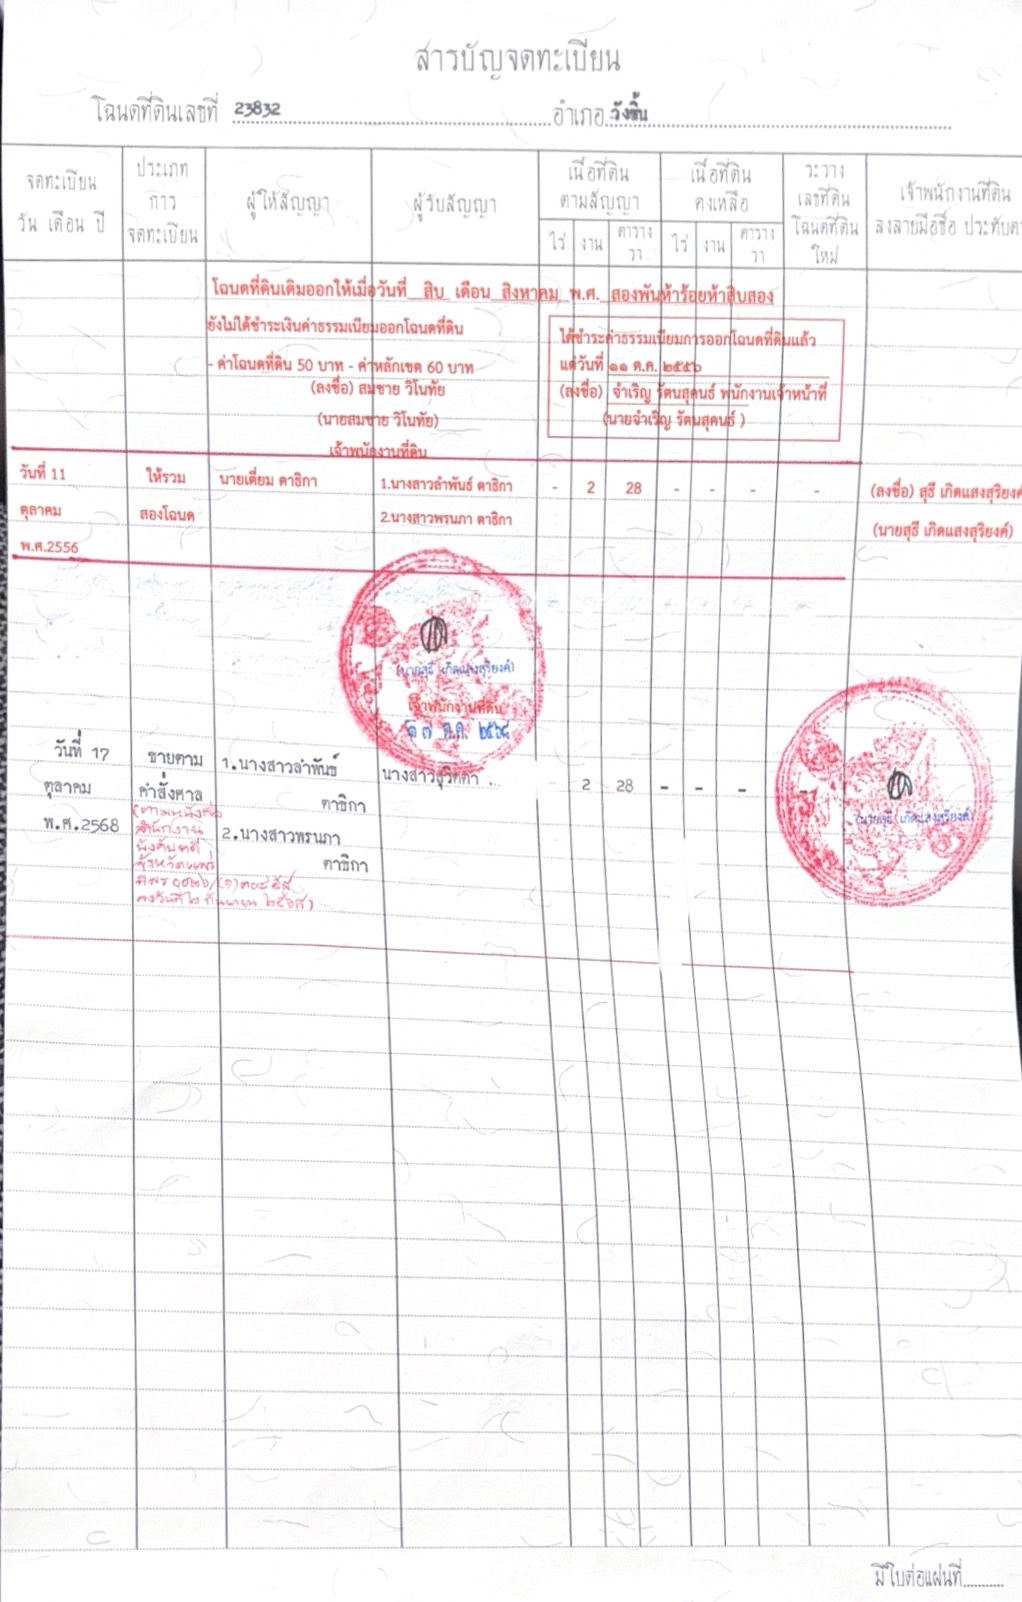 สารบัญจดทะเบียน
โฉนดที่ดินเลขที่ 23832 อำเภอ วังชิ้น
จดทะเบียน วัน เดือน ปี
ประเภท การ จดทะเบียน
ผู้ให้สัญญา
ผู้รับสัญญา
เนื้อที่ดิน ตามสัญญา
ไร่ งาน ตาราง วา
เนื้อที่ดิน คงเหลือ
ไร่ งาน ตาราง วา
ระวาง เลขที่ดิน โฉนดที่ดิน ใหม่
เจ้าพนักงานที่ดิน
ลงลายมือชื่อ ประทับตรา
โฉนดที่ดินเดิมออกให้เมื่อวันที่ สิบ เดือน สิงหาคม พ.ศ. สองพันห้าร้อยห้าสิบสอง
ยังไม่ได้ชำระเงินค่าธรรมเนียมออกโฉนดที่ดิน
- ค่าโฉนดที่ดิน 50 บาท - ค่าหลักเขต 60 บาท
(ลงชื่อ) สมชาย วิโนทัย
(นายสมชาย วิโนทัย)
เจ้าพนักงานที่ดิน
ได้ชำระค่าธรรมเนียมการออกโฉนดที่ดินแล้ว
แต่วันที่ ๑๑ ต.ค. ๒๕๕๖
(ลงชื่อ) จำเริญ รัตนสุคนธ์ พนักงานเจ้าหน้าที่
(นายจำเริญ รัตนสุคนธ์ )
วันที่ 11 ให้รวม นายเตี่ยม ตาธิกา 1.นางสาวลำพันธ์ ตาธิกา - 2 28 - - - - (ลงชื่อ) สุธี เกิดแสงสุริยงค์
ตุลาคม สองโฉนด 2.นางสาวพรนภา ตาธิกา (นายสุธี เกิดแสงสุริยงค์)
พ.ศ.2556
(นายสุธี เกิดแสงสุริยงค์)
เจ้าพนักงานที่ดิน
๑๗ ต.ค. ๒๕๖๘
วันที่ 17 ขายตาม 1.นางสาวลำพันธ์ - 2 28 - - - -
ตุลาคม คำสั่งศาล ตาธิกา
พ.ศ.2568 (ตามหนังสือ
สำนักงาน 2.นางสาวพรนภา
บังคับคดี ตาธิกา
จังหวัดแพร่
(นายสุธี เกิดแสงสุริยงค์)
มีใบต่อแผ่นที่..........